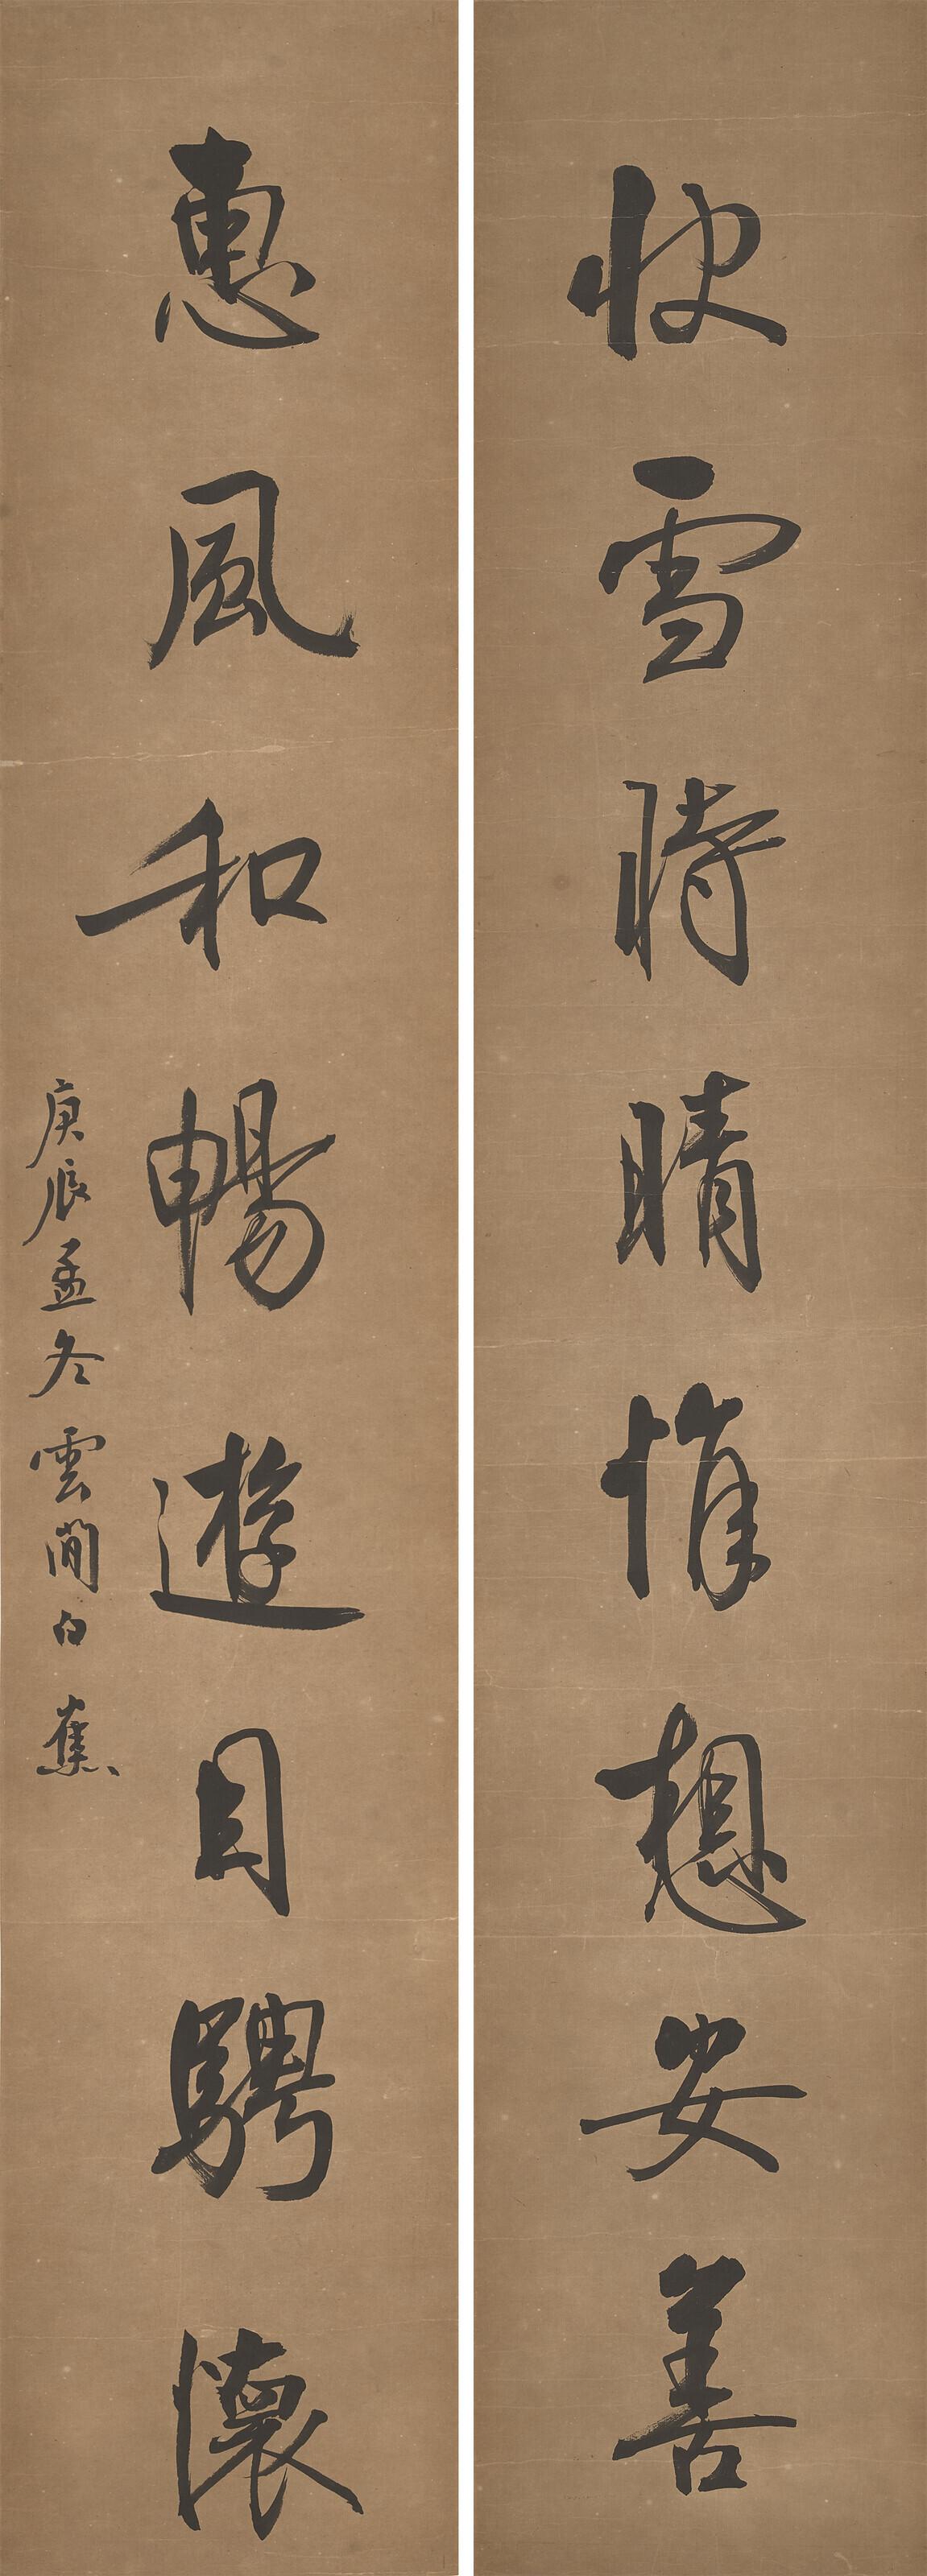 快雪時晴惟想安善
惠風和暢遊目騁懷
庚辰孟冬雲間白蕉